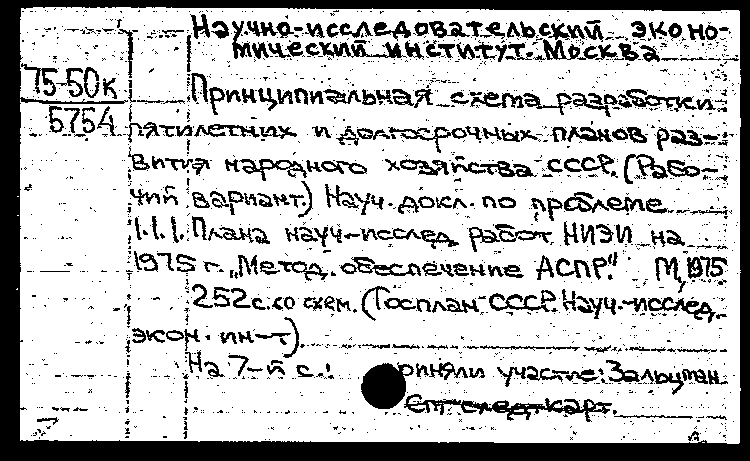 Научно-исследовательский эконо-
мический институт. Москва
75-50к
5754
Принципиальная схема разработки
пятилетних и долгосрочных планов раз-
вития народного хозяйства СССР. (Рабо-
чий вариант.) Науч. докл. по проблеме
1.1.1. Плана науч.-исслед. работ НИЭИ на
1975 г. „Метод. обеспечение АСПР." М, 1975
252 с. со схем. (Госплан СССР. Науч.-исслед.
экон. ин-т).
На 7-й с.: приняли участие: Зальцман
след карт.